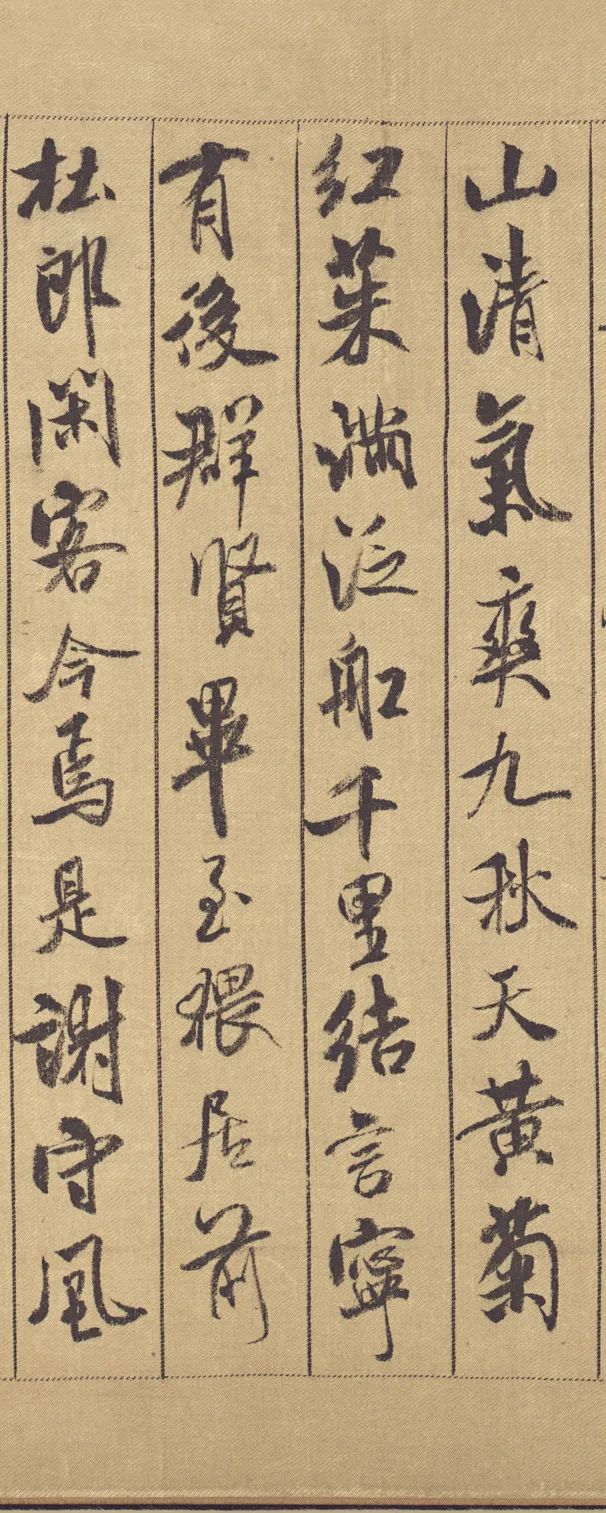 山清氣爽九秋天黃菊
紅茱滿泛船千里結言寧
有後群賢畢至猥居前
杜郎閑客今焉是謝守風